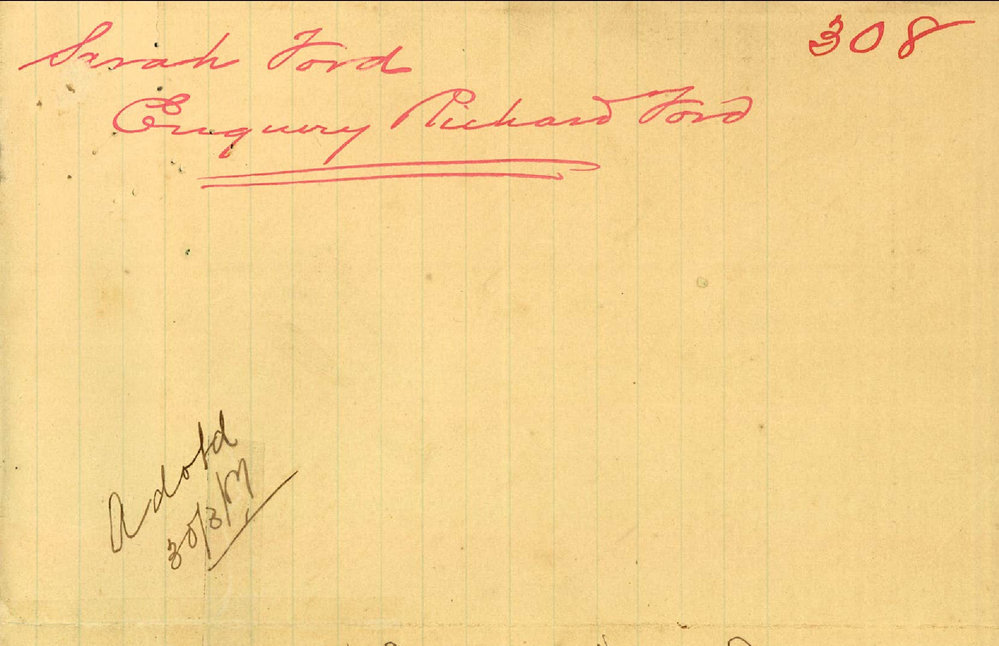 308
Sarah Ford
Enquiry Richard Ford
30/3/17